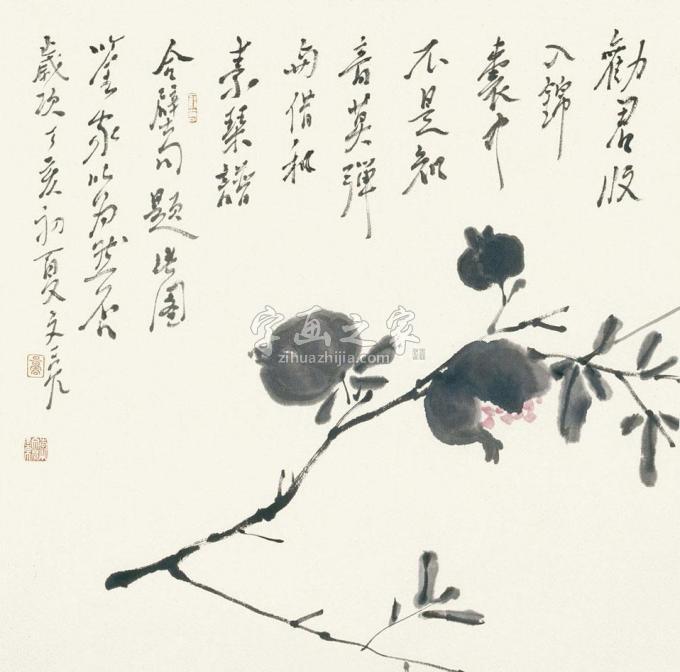 勸君收
入錦
囊中
不是知
音莫彈
與借和
素琴譜
合璧句題此圖
鑒家以為然否
歲次丁亥初夏文亮
字画之家
zihuazhijia.com